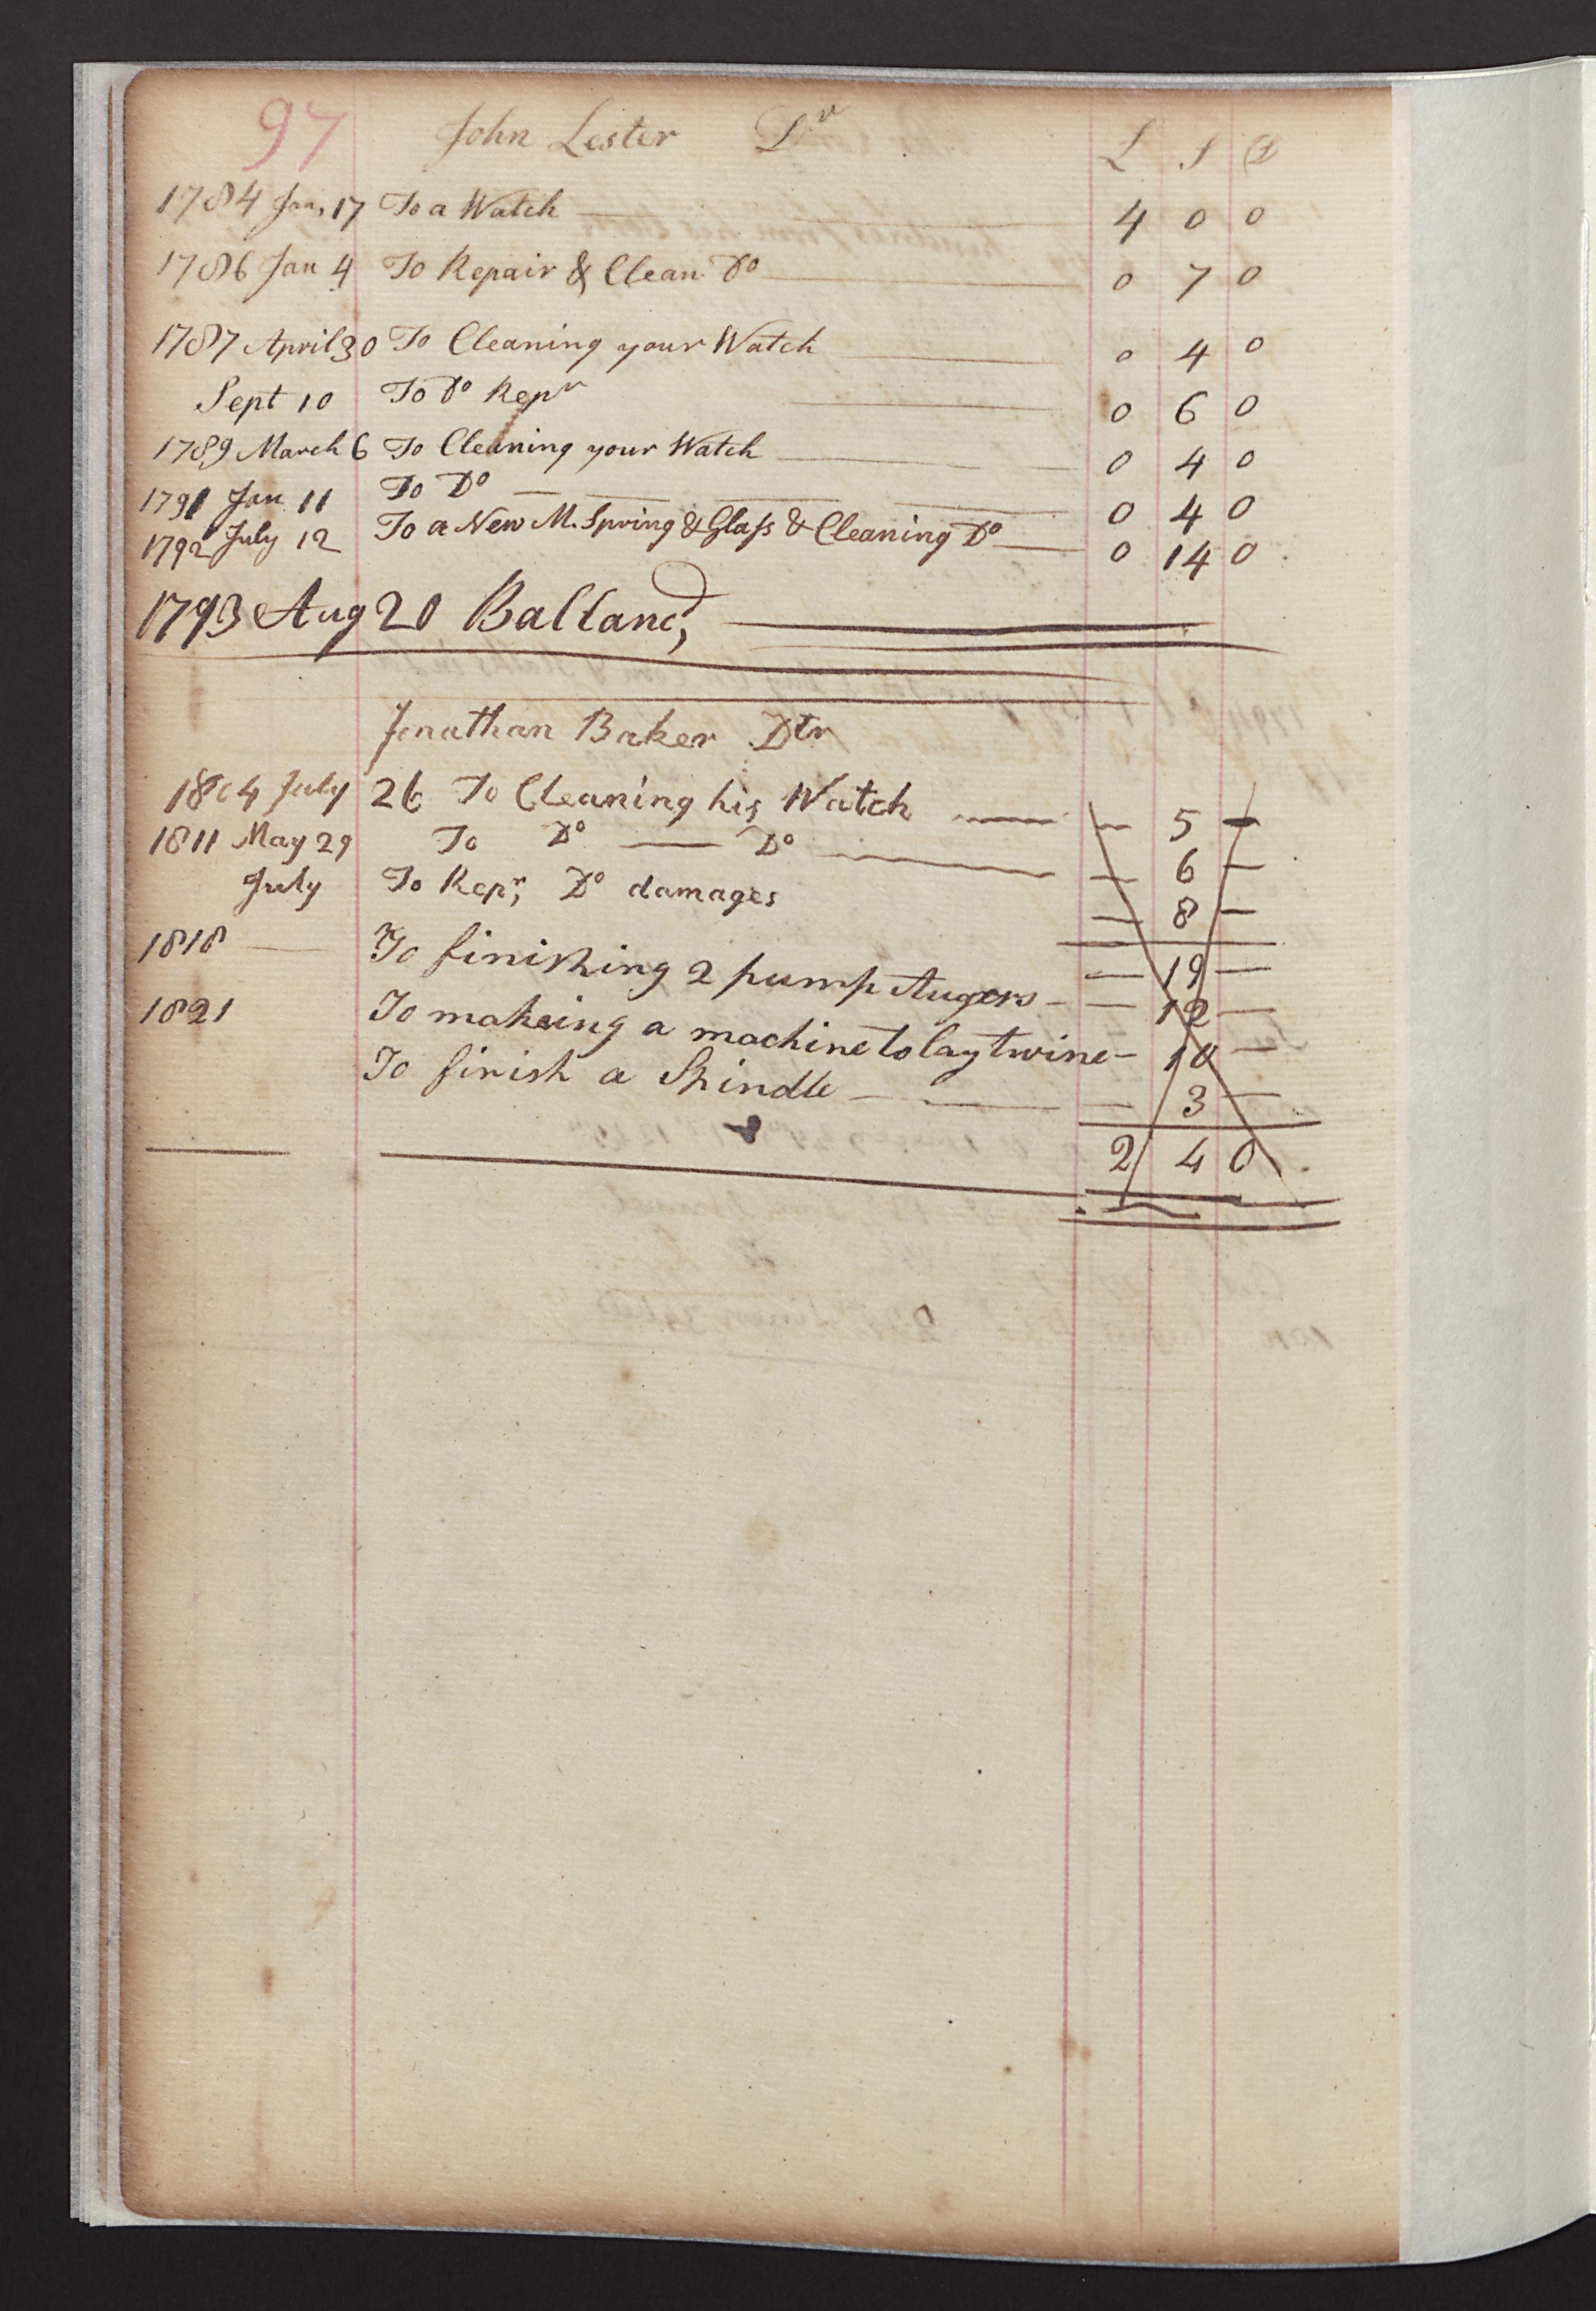 97 John Lester Dr L S D
1784 Jan, 17 To a Watch 4 0 0
1786 Jan 4 To Repair & Clean Do 0 7 0
1787 April 30 To Cleaning your Watch 0 4 0
Sept 10 To Do Repr 0 6 0
1789 March 6 To Cleaning your Watch 0 4 0
1791 Jan 11 To Do 0 4 0
1792 July 12 To a New M. Spring & Glass & Cleaning Do 0 14 0
1793 Aug 20 Ballancd,
Jonathan Baker Dtr
1804 July 26 To Cleaning his Watch — 5 —
1811 May 29 To Do — Do — 6 —
July To Repr, Do damages — 8 —
— 19 —
1818 — To finishing 2 pump Augers — — 12 —
1821 To makeing a machine to lay twine — 10 —
To finish a Spindle — — 3 —
2 4 0